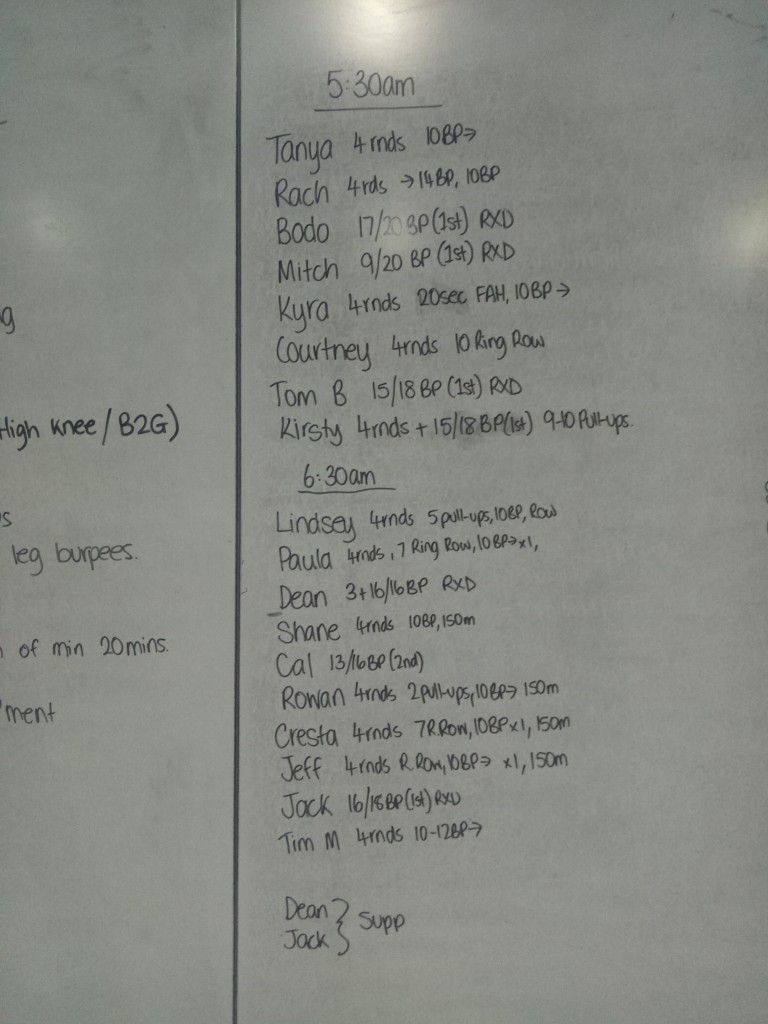 5:30am
Tanya 4rnds 10BP→
Rach 4rds →14BP, 10BP
Bodo 17/20BP(1st) RXD
Mitch 9/20 BP (1st) RXD
Kyra 4rnds 20sec FAH, 10BP→
Courtney 4rnds 10 Ring Row
Tom B 15/18BP(1st) RXD
Kirsty 4rnds + 15/18BP(1st) 9-10 Pull-ups.
6:30am
Lindsey 4rnds 5pull-ups, 10BP, Row
Paula 4rnds, 7 Ring Row, 10BP→x1,
Dean 3+16/16BP RXD
Shane 4rnds 10BP, 150m
Cal 13/16BP(2nd)
Rowan 4rnds 2pull-ups, 10BP→ 150m
Cresta 4rnds 7R.Row, 10BPx1, 150m
Jeff 4rnds R.Row, 10BP→ x1, 150m
Jack 16/18BP(1st) RXD
Tim M 4rnds 10-12BP→
Dean } Supp
Jack
g
High knee / B2G)
s
leg burpees.
of min 20mins.
'ment